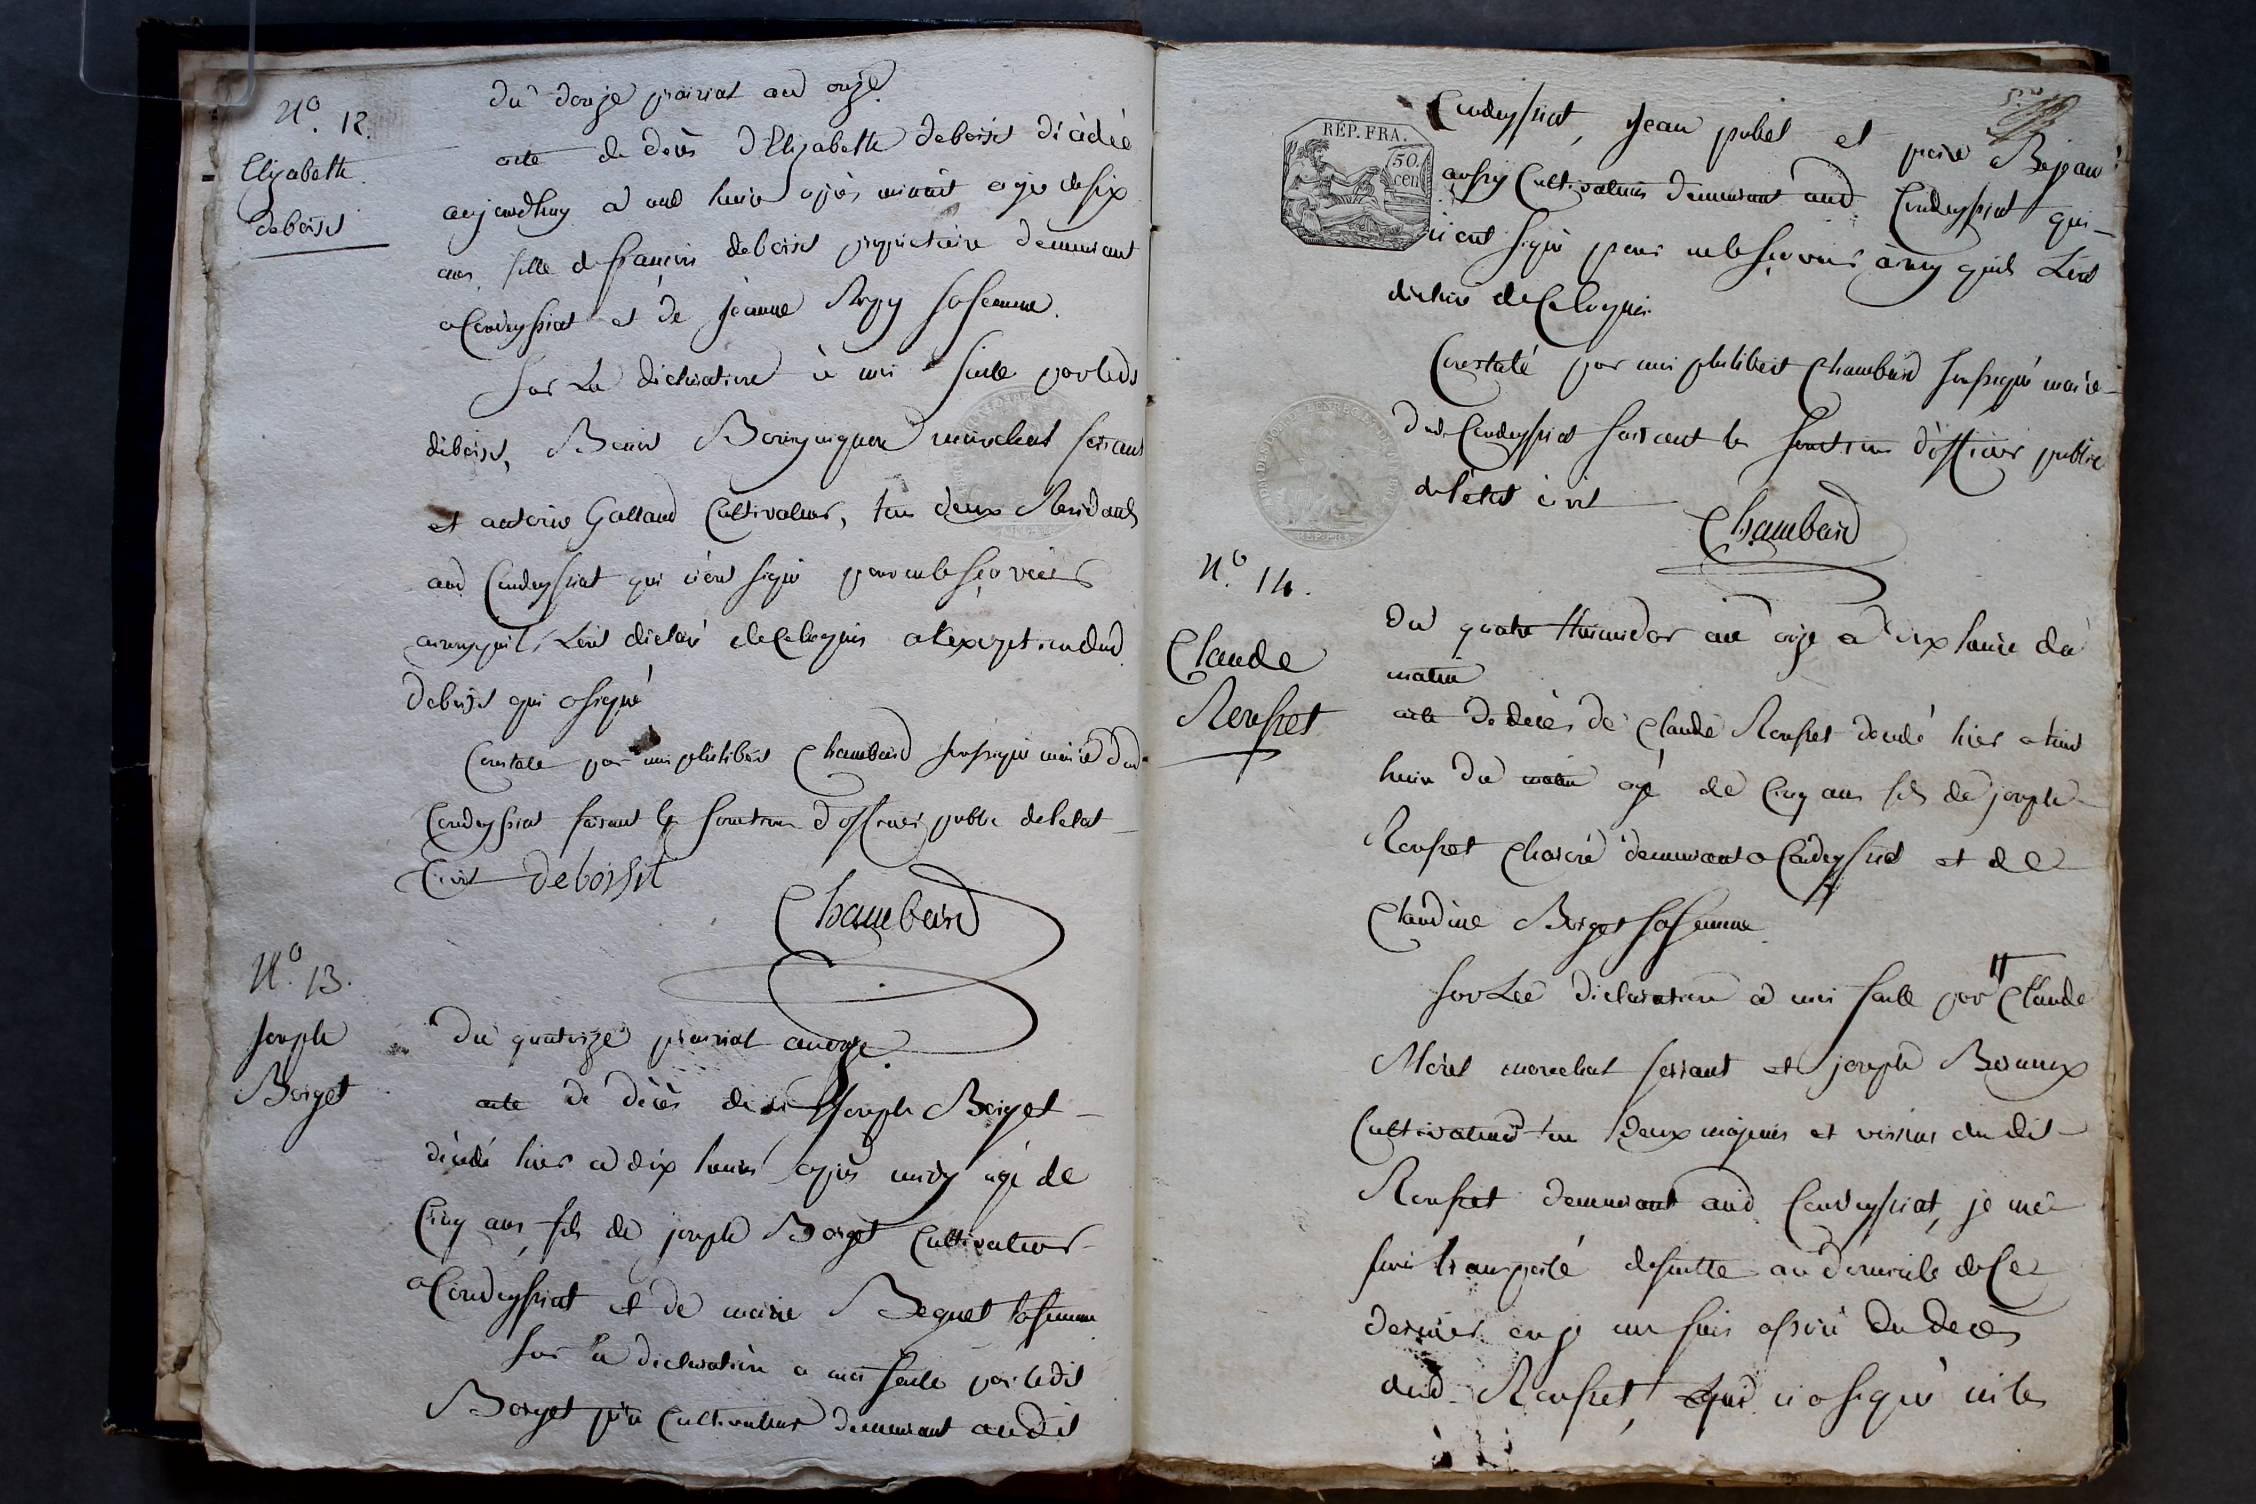 N.º 12.
Elizabeth
deboisit
du douze prairial an onze
acte de décès d'Elizabeth deboisit décédée
aujourdhuy a une heure après minuit agée de six
ans, fille de françois deboisit propriétaire demeurant
a Condeyssiat et de jeanne sa femme.
sur La déclaration à moi faite par ledt
deboisit, Benoit marechal ferrant
et antoine Galland Cultivateur, tous deux Residants
aud Condeyssiat qui n'ont signé pour ne le sçavoir
ainsy qu'ils L'ont déclaré de Ce Requis a l'exeption dud
deboisit qui a signé
Constaté par moi philibert Chambard soussigné maire dud
Condeyssiat faisant les fonctions d'officier public de l'etat
Civil deboissit
Chambard
N.º 13.
joseph
Borget
du quatorze prairial an onze
acte de décès de joseph Borget
décédé hier a dix heures après midy agé de
Cinq ans, fils de joseph Borget Cultivateur
a Condeyssiat et de marie Beguet sa femme
sur la déclaration a moi faite par ledit
Borget père Cultivateur demeurant audit
RÉP. FRA.
50.
cen
Condeyssiat, jean pobel et
aussy Cultivateurs demeurant aud. Condeyssiat qui
n'ont signé pour ne le sçavoir ainsy qu'ils L'ont
déclaré de Ce Requis.
Constaté par moi philibert Chambard soussigné maire
dud Condeyssiat faisant les fonctions d'officier public
de l'état civil
Chambard
N.º 14.
Claude
Renfret
du quatre thermidor an onze a dix heures du
matin
acte de décès de Claude Renfret décédé hier a huit
heures du matin agé de Cinq ans fils de joseph
Renfret demeurant a Condeyssiat et de
Claudine Borget sa femme
sur La déclaration a moi faite par Claude
Morel marechal ferrant et joseph
Cultivateur tous deux majeurs et voisins dudit
Renfret demeurant aud. Condeyssiat, je me
suis transporté de suitte au domicile de Ce
dernier ou je me suis assuré du deces
dud. Renfret, n'a signé ni les